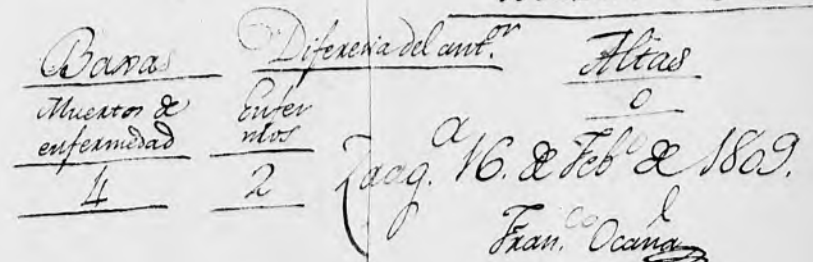 Baxas Diferencia del ant.or Altas
Muertos de enfermedad Enfermos 0
4 2 Zarag.a 16. de Feb.o de 1809.
Fran.co Ocaña